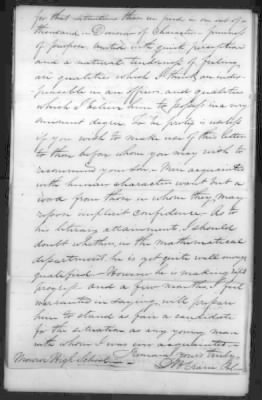 for that
thousand. Decision of Character, firmness
of purpose, united with quick perception
and a natural tenderness of feeling
are qualities which I think are indis-
pensable in an officer, and qualities
which I believe him to possess in a very
eminent degree.
if you wish to make use of this letter
to those before whom you may wish to
recommend your son. Men acquainted
with human character want but a
word from those in whom they may
repose implicit confidence. As to
his literary attainments, I should
doubt whether, in the mathematical
department he is yet quite well enough
qualified. However he is making
progress and a few months, I feel
warranted in saying, will prepare
him to stand as fair a candidate
for the situation as any young man
with whom I was ever acquainted.
Monroe High School yours truly